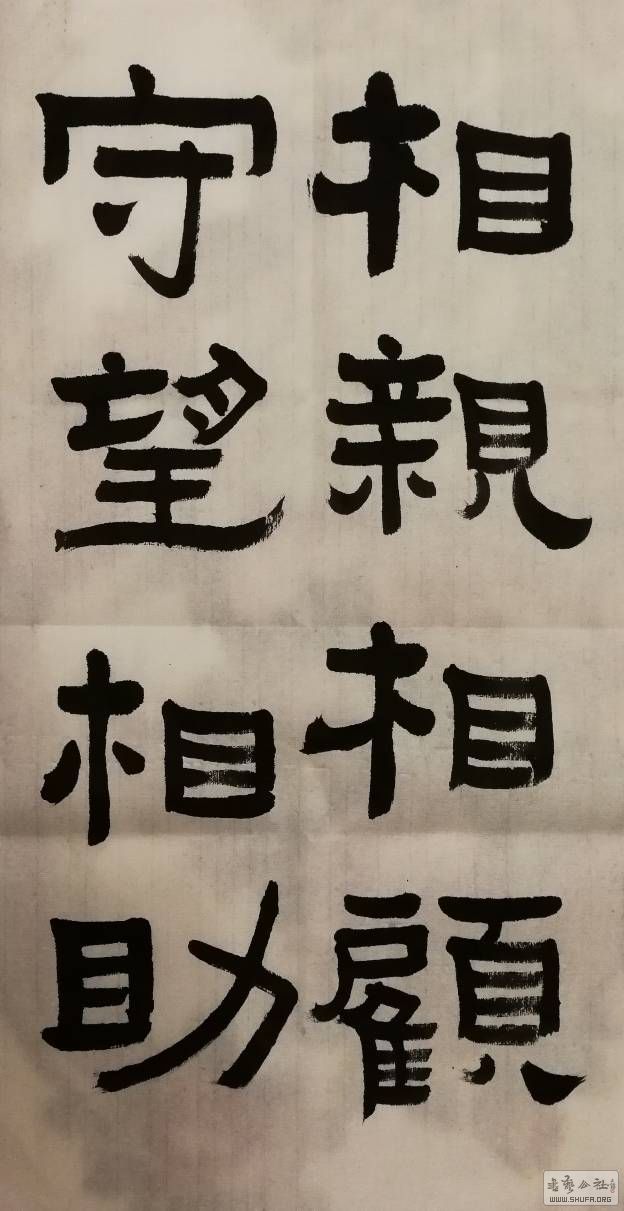 相親相顧
守望相助
书艺公社
WWW.SHUFA.ORG